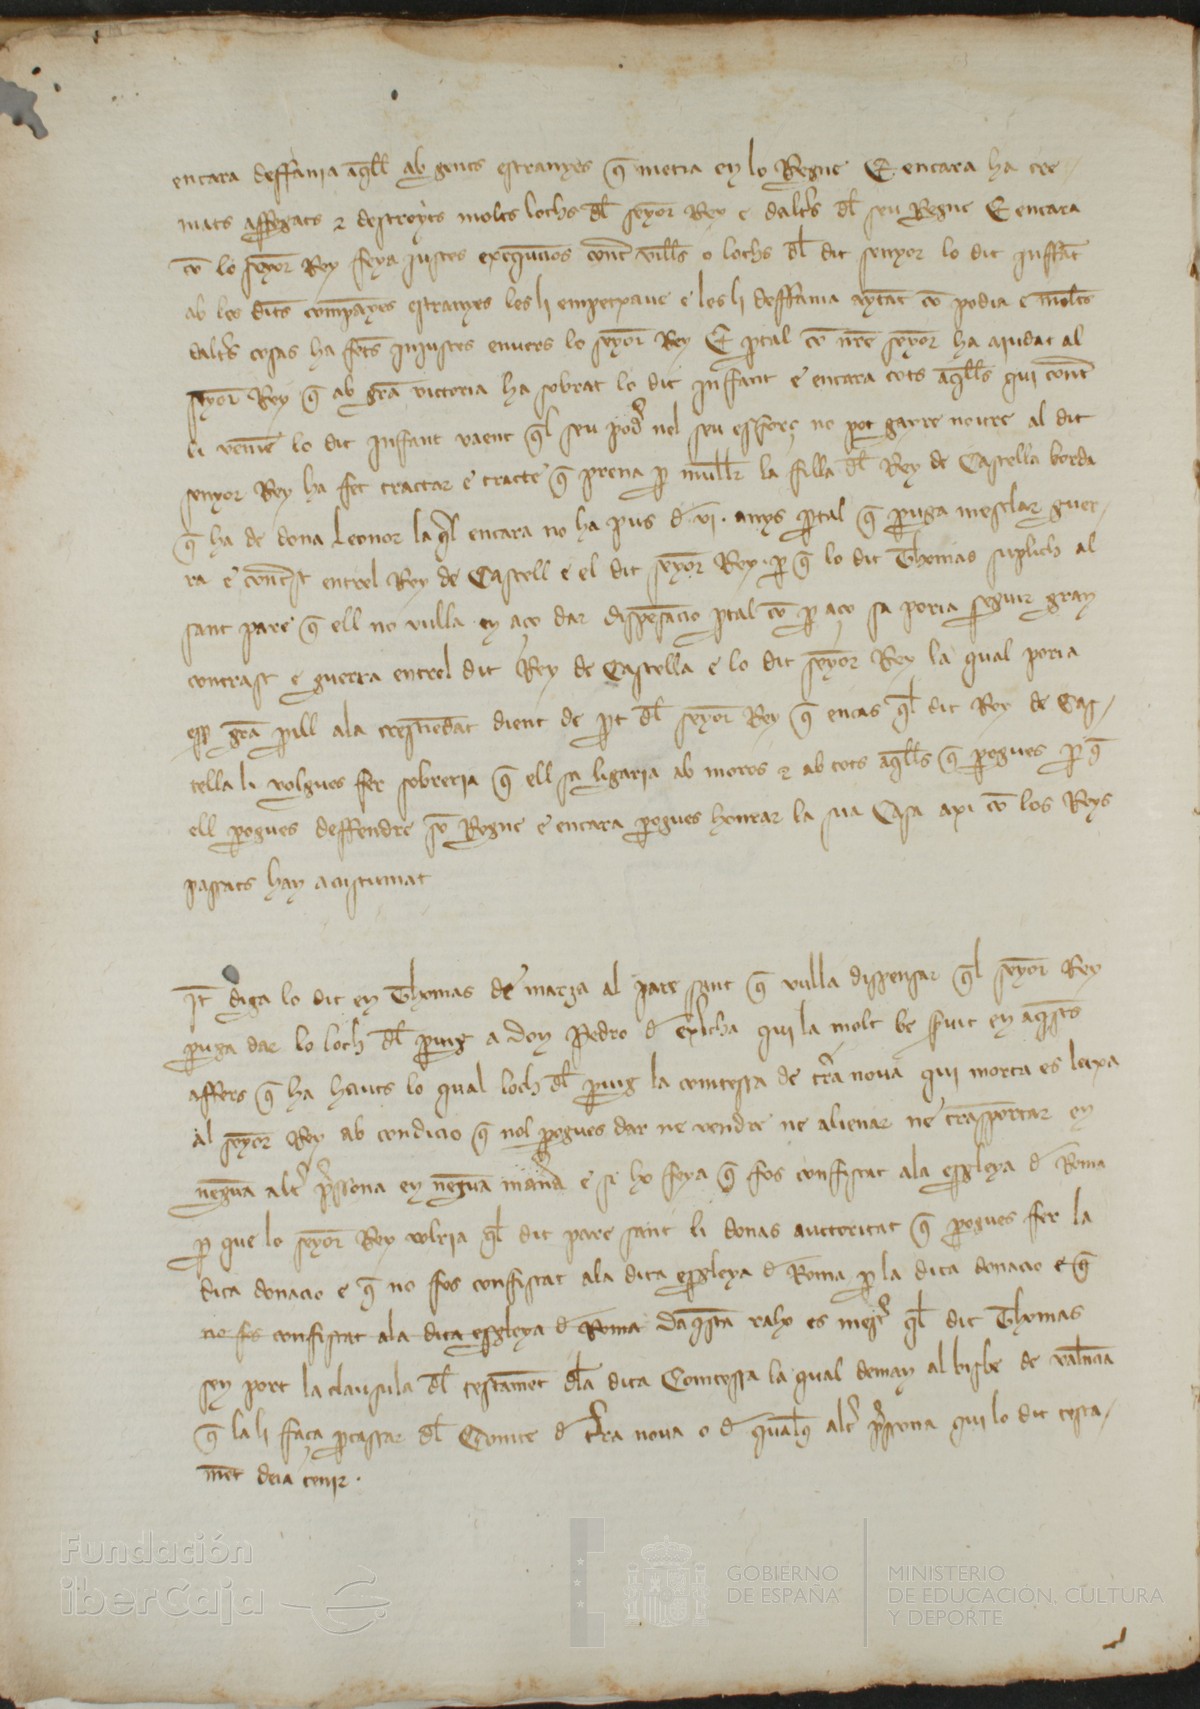 encara deffania aq̄ll ab gents estranyes q̄ metia en lo Regne E encara ha cre-
mats affogats e destroyts molts lochs dl senyor Rey e daltrs dl seu Regne E encara
cō lo senyor Rey feya justes exequcios cont villes o lochs dl dit senyor lo dit inffāt
ab les dits companyes estranyes les li empetxaue e les li deffania aytāt cō podia e molts
daltrs cosas ha fets injustes enuers lo senyor Rey E ꝑtal cō nr̄e senyor ha ajudat al
senyor Rey q̄ ab grā victoria ha sobrat lo dit inffant e encara tots aq̄lls qui cont
li venie lo dit infant vaent q̄l seu poder nel seu esforç no pot gayre noure al dit
senyor Rey ha fet tractar e tracte q̄ prena ꝑ muller la filla dl Rey de Castella borda
q̄ ha de dona Leonor la q̄l encara no ha pus d vi. anys ꝑtal q̄ puga mesclar guer-
ra e contrast entrel Rey de Castell e el dit senyor Rey. ꝑ q̄ lo dit Thomas suplich al
sant pare q̄ ell no vulla en aço dar dispesacio ꝑtal cō ꝑ aço sa poria seguir gran
contrast e guerra entrel dit Rey de Castella e lo dit senyor Rey la qual poria
eēr grā ꝑill ala crestiedat dient de ꝑt dl senyor Rey q̄ encas q̄l dit Rey de Cas-
tella li volgues fer sobreria q̄ ell sa ligaria ab moros e ab tots aq̄lls q̄ pogues ꝑ q̄
ell pogues deffendre sō Regne e encara pogues honrar la sua Casa axi cō los Reys
passats han acustumat
Itē diga lo dit en Thomas de marza al pare sant q̄ vulla dispensar q̄l senyor Rey
puga dar lo loch dl puig a don Pedro d exericha qui la molt be seruit en aq̄sts
affers q̄ ha hauts lo qual loch dl puig la comtessa de trā noua qui morta es leixa
al senyor Rey ab condicio q̄ nol pogues dar ne vendre ne alienar ne trasportar en
neguā altr ꝑsona en neguā manā e si ho feya q̄ fos confiscat ala esgleya d Roma
ꝑ que lo senyor Rey volria q̄l dit pare sant li donas auctoritat q̄ pogues fer la
dita donacio e q̄ no fos confiscat ala dita esgleya d Roma ꝑ la dita donacio e q̄
no fos confiscat ala dita esgleya d Roma daq̄sta raho es mestr q̄l dit Thomas
sen port la clausula dl testamēt dla dita Comtessa la qual deman al bisbe de valencia
q̄ la li faça ꝑcassar dl Comte d trra noua o d qualq̄ altr ꝑsona qui lo dit testa-
mēt deia tenir.
Fundación
iberCaja
GOBIERNO
DE ESPAÑA
MINISTERIO
DE EDUCACIÓN, CULTURA
Y DEPORTE